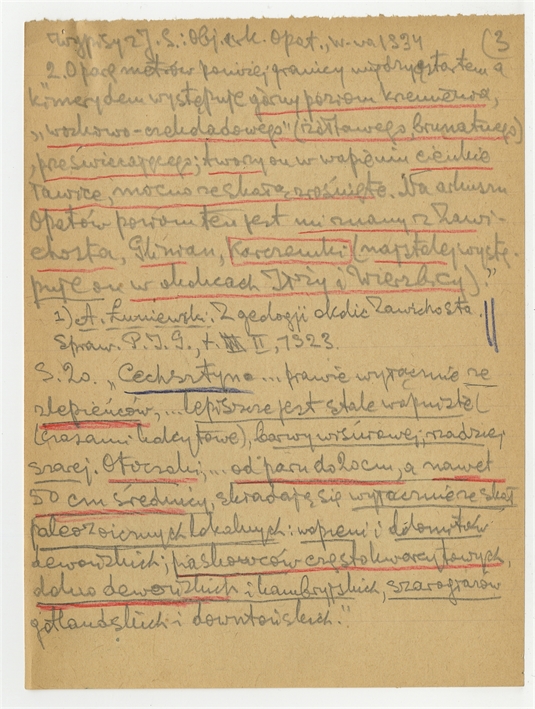 Wypisy z J. S.: Obj. ark. Opat., W-wa 1934 (3
2. O parę metrów poniżej granicy między astartem a
kimerydem występuje górny poziom krzemienia,
„woskowo-czekoladowego" (żółtawego, brunatnego)
, przeświecającego; tworzy on w wapieniu cienkie
ławice, mocno ze skałą zrośnięte. Na arkuszu
Opatów poziom ten jest mi znany z Zawi-
chosta, Glinian, Karczemki (najstalej wystę-
puje on w okolicach Iłży i Wierzbicy)."
1) A. Łuniewski. Z geologji okolic Zawichosta.
Spraw. P. I. G., t. II, 1923.
S. 20. „Cechsztyn ... prawie wyłącznie ze
zlepieńców, ... lepiszcze jest stale wapniste (
(czasami kalcytowe), barwy wiśniowej, rzadziej
szarej. Otoczaki, ... od paru do 20 cm, a nawet
50 cm średnicy, składają się wyłącznie ze skał
paleozoicznych lokalnych: wapieni i dolomitów
dewońskich, piaskowców często kwarcytowych,
dolno dewońskich i kambryjskich, szarogłazów
gotlandzkich i downtońskich."